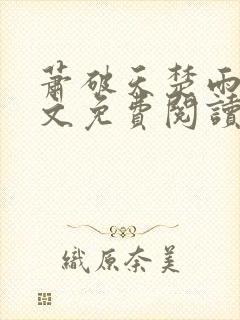 蕭破天楚雨
文免費閱讀
織原奈美